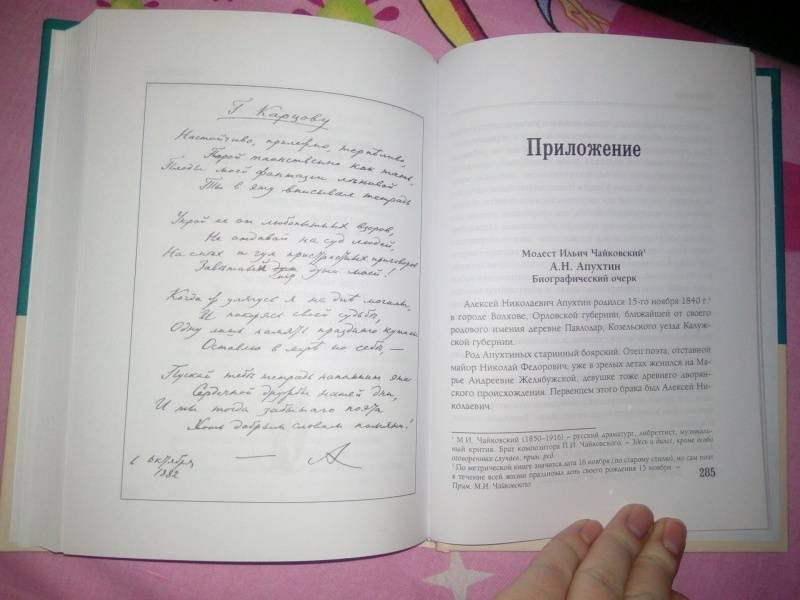 Г. Карцову
Настойчиво, прилежно, терпѣливо,
Порой таинственно как тать,
Плоды моей фантазии лѣнивой
Ты в эту вписывал тетрадь
Укрой ее от любопытных взоров,
Не отдавай на суд людей,
На смѣх и гул пристрастных приговоров
Заветный мир души моей!
Когда ж улягусь я на днѣ могилы,
И покорясь своей судьбѣ,
Одну лишь память праздного кутилы
Оставлю в мирѣ по себѣ, —
Пускай тебѣ тетрадь напомнит эта
Сердечной дружбы нашей дни,
И ты тогда забытаго поэта
Хоть добрым словом помяни!
6 октября
1882
— А
Приложение
Модест Ильич Чайковский¹
А.Н. Апухтин
Биографический очерк
Алексей Николаевич Апухтин родился 15-го ноября 1840 г.²
в городе Волхове, Орловской губернии, ближайшей от своего
родового имения деревне Павлодар, Козельского уезда Калуж-
ской губернии.
Род Апухтиных старинный боярский. Отец поэта, отставной
майор Николай Федорович, уже в зрелых летах женился на Ма-
рье Андреевне Желябужской, девушке тоже древнего дворян-
ского происхождения. Первенцем этого брака был Алексей Ни-
колаевич.
¹ М.И. Чайковский (1850–1916) – русский драматург, либреттист, музыкаль-
ный критик. Брат композитора П.И. Чайковского. – Здесь и далее, кроме особо
оговоренных случаев, прим. ред.
² По метрической книге значится дата 16 ноября (по старому стилю), но сам поэт
в течение всей жизни праздновал день своего рождения 15 ноября. –
Прим. М.И. Чайковского.
285